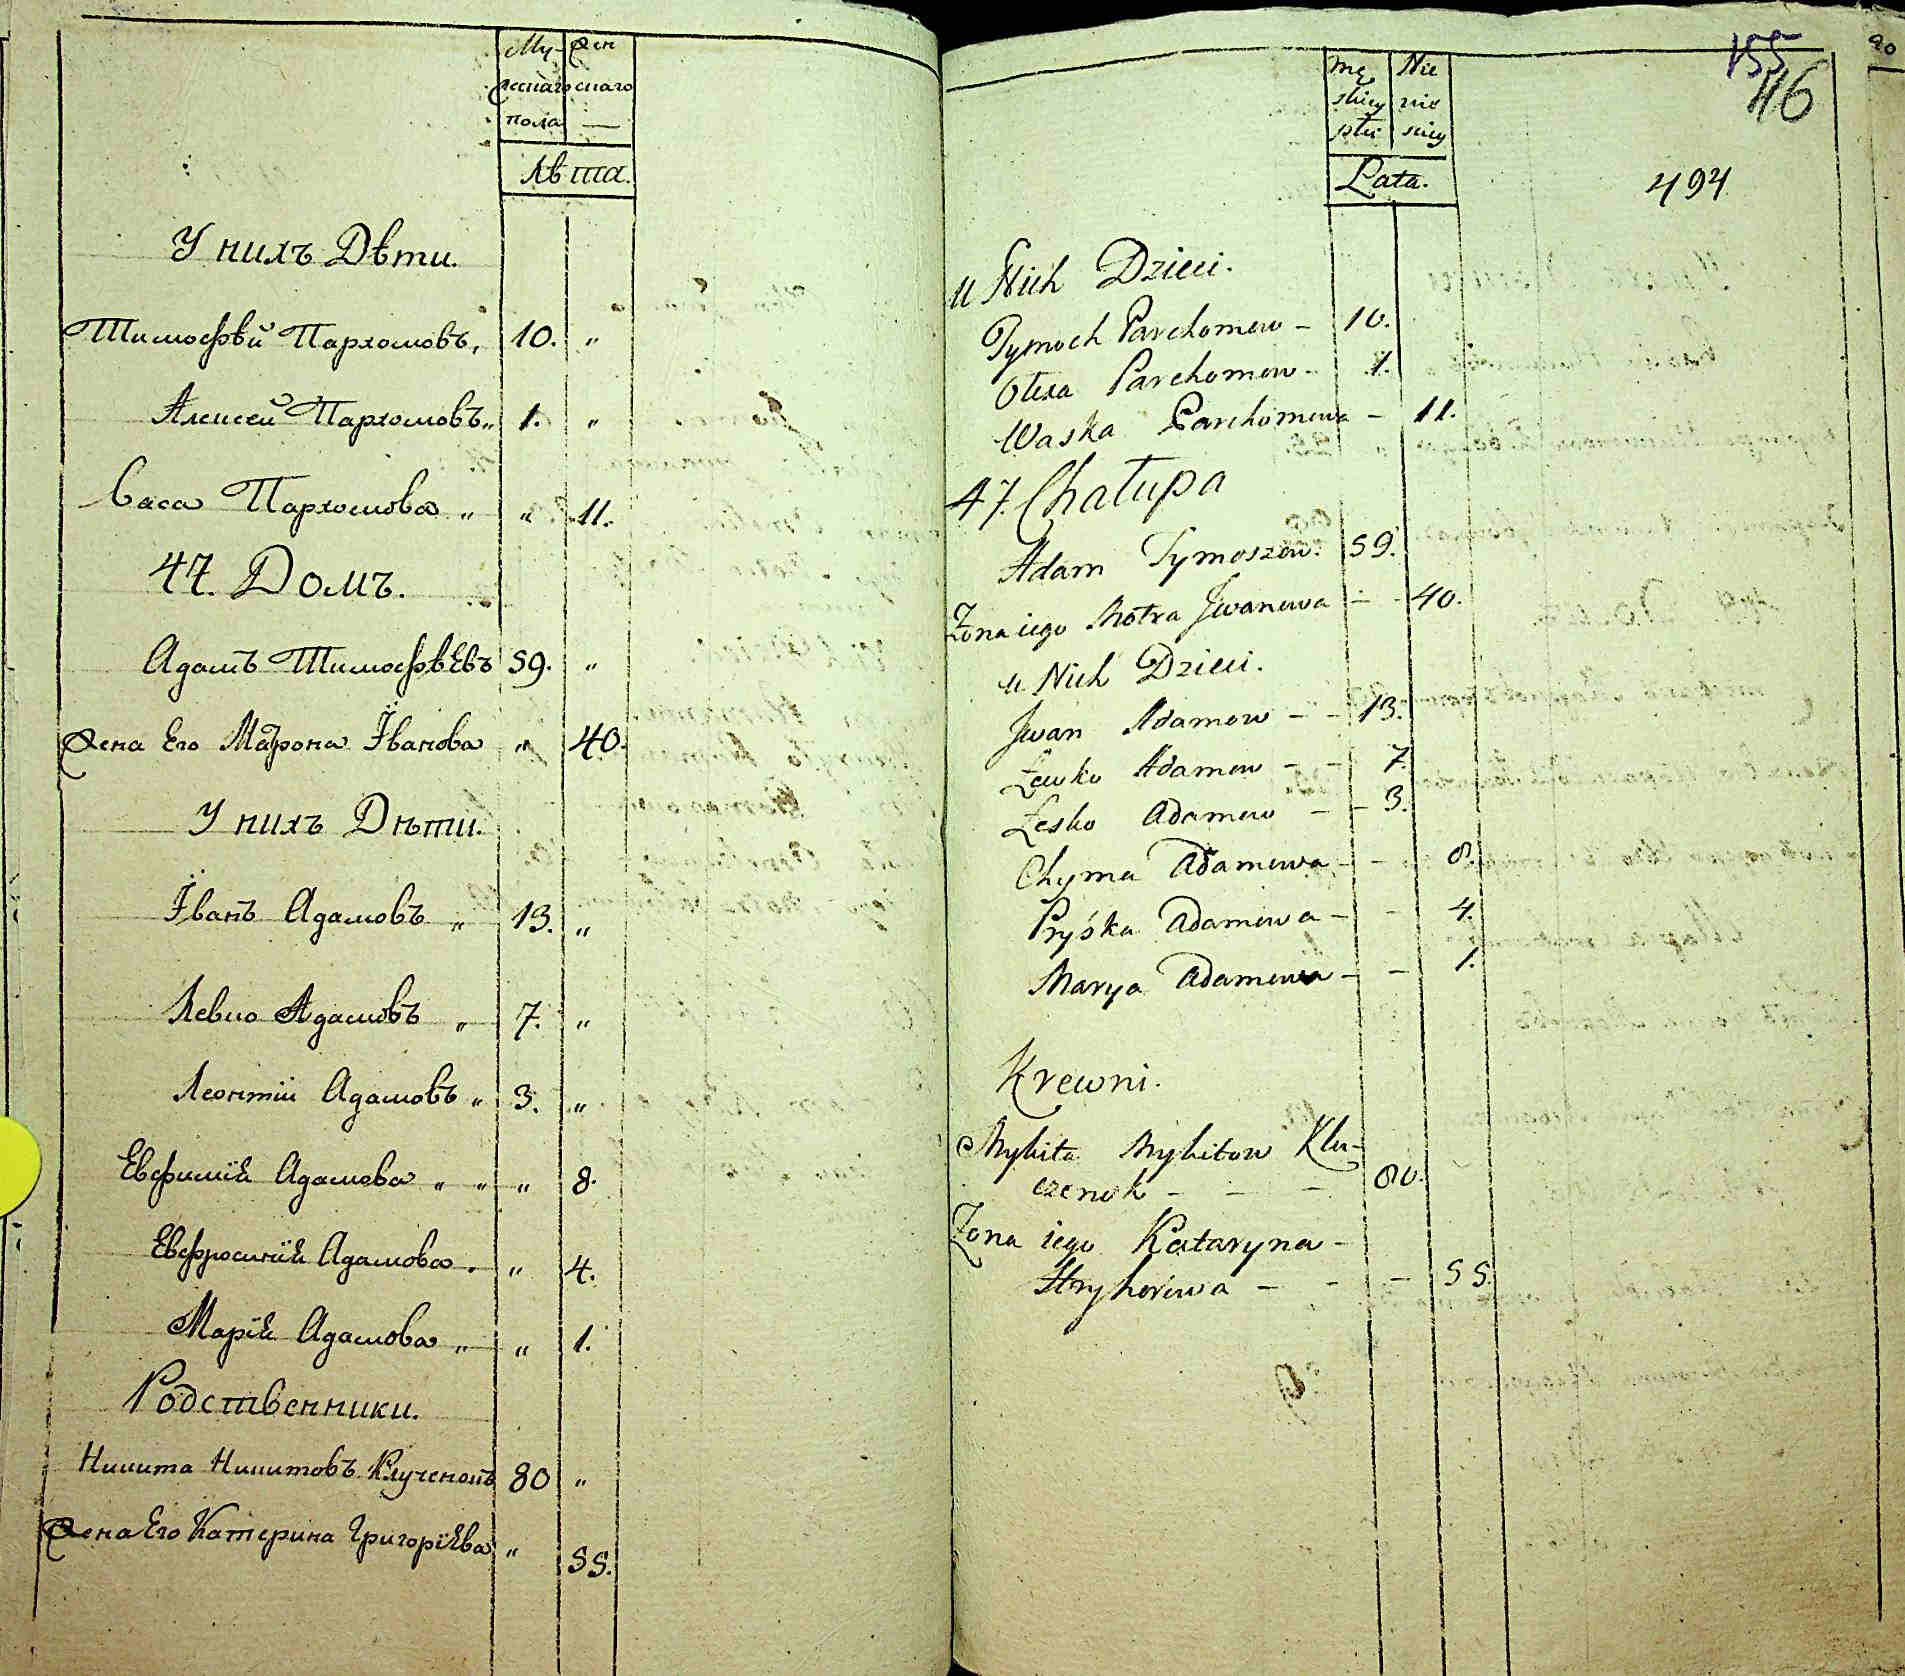 Му- Жен
жескаго скаго
пола —
Лѣта.
У нихъ Дѣти.
Тимофѣй Пархомовъ, 10. „
Алексей Пархомовъ „ 1. „
Васа Пархомова „ „ 11.
47. Домъ.
Адамъ Тимофѣевъ 59. „
Жена Его Матрона Іванова „ 40.
У нихъ Дѣти.
Іванъ Адамовъ „ 13. „
Левко Адамовъ „ 7. „
Леонтій Адамовъ „ 3. „
Евфимія Адамова „ „ „ 8.
Евфросинія Адамова „ „ 4.
Марія Адамова „ „ 1.
Родственники.
Никита Никитовъ Клученокъ 80 „
Жена Его Катерина Григоріева „ 55.
155
46
90
494
mę Nie
skiey wie
płci skiey
Lata.
u Nich Dzieci.
Tymoch Parchomow – 10.
Olexa Parchomow – 1.
Waska Parchomowa – 11.
47. Chałupa
Adam Tymoszow. 59.
Żona iego Motra Jwanowa – – 40.
u Nich Dzieci.
Jwan Adamow – – 13.
Lewko Adamow – – 7.
Lesko Adamow – – 3.
Chyma Adamowa – – 8.
Pryśka Adamowa – – 4.
Marya Adamowa – – 1.
Krewni.
Mykita Mykitow Klu-
czenok – – – 80.
Żona iego Kataryna –
Hryhoriwa – – – 55.